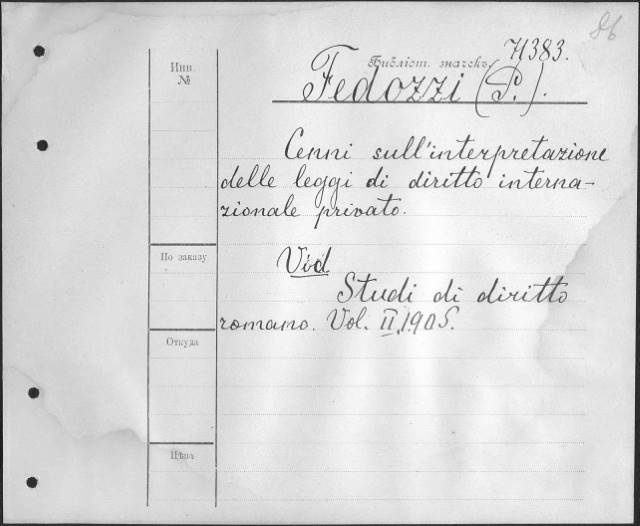 86
71383.
Библіот. значекъ
Fedozzi (P.).
Инв.
№
Cenni sull'interpretazione
delle leggi di diritto interna-
zionale privato.
По заказу
Vid
Studi di diritto
romano. Vol. II, 1905.
Откуда
Цѣна